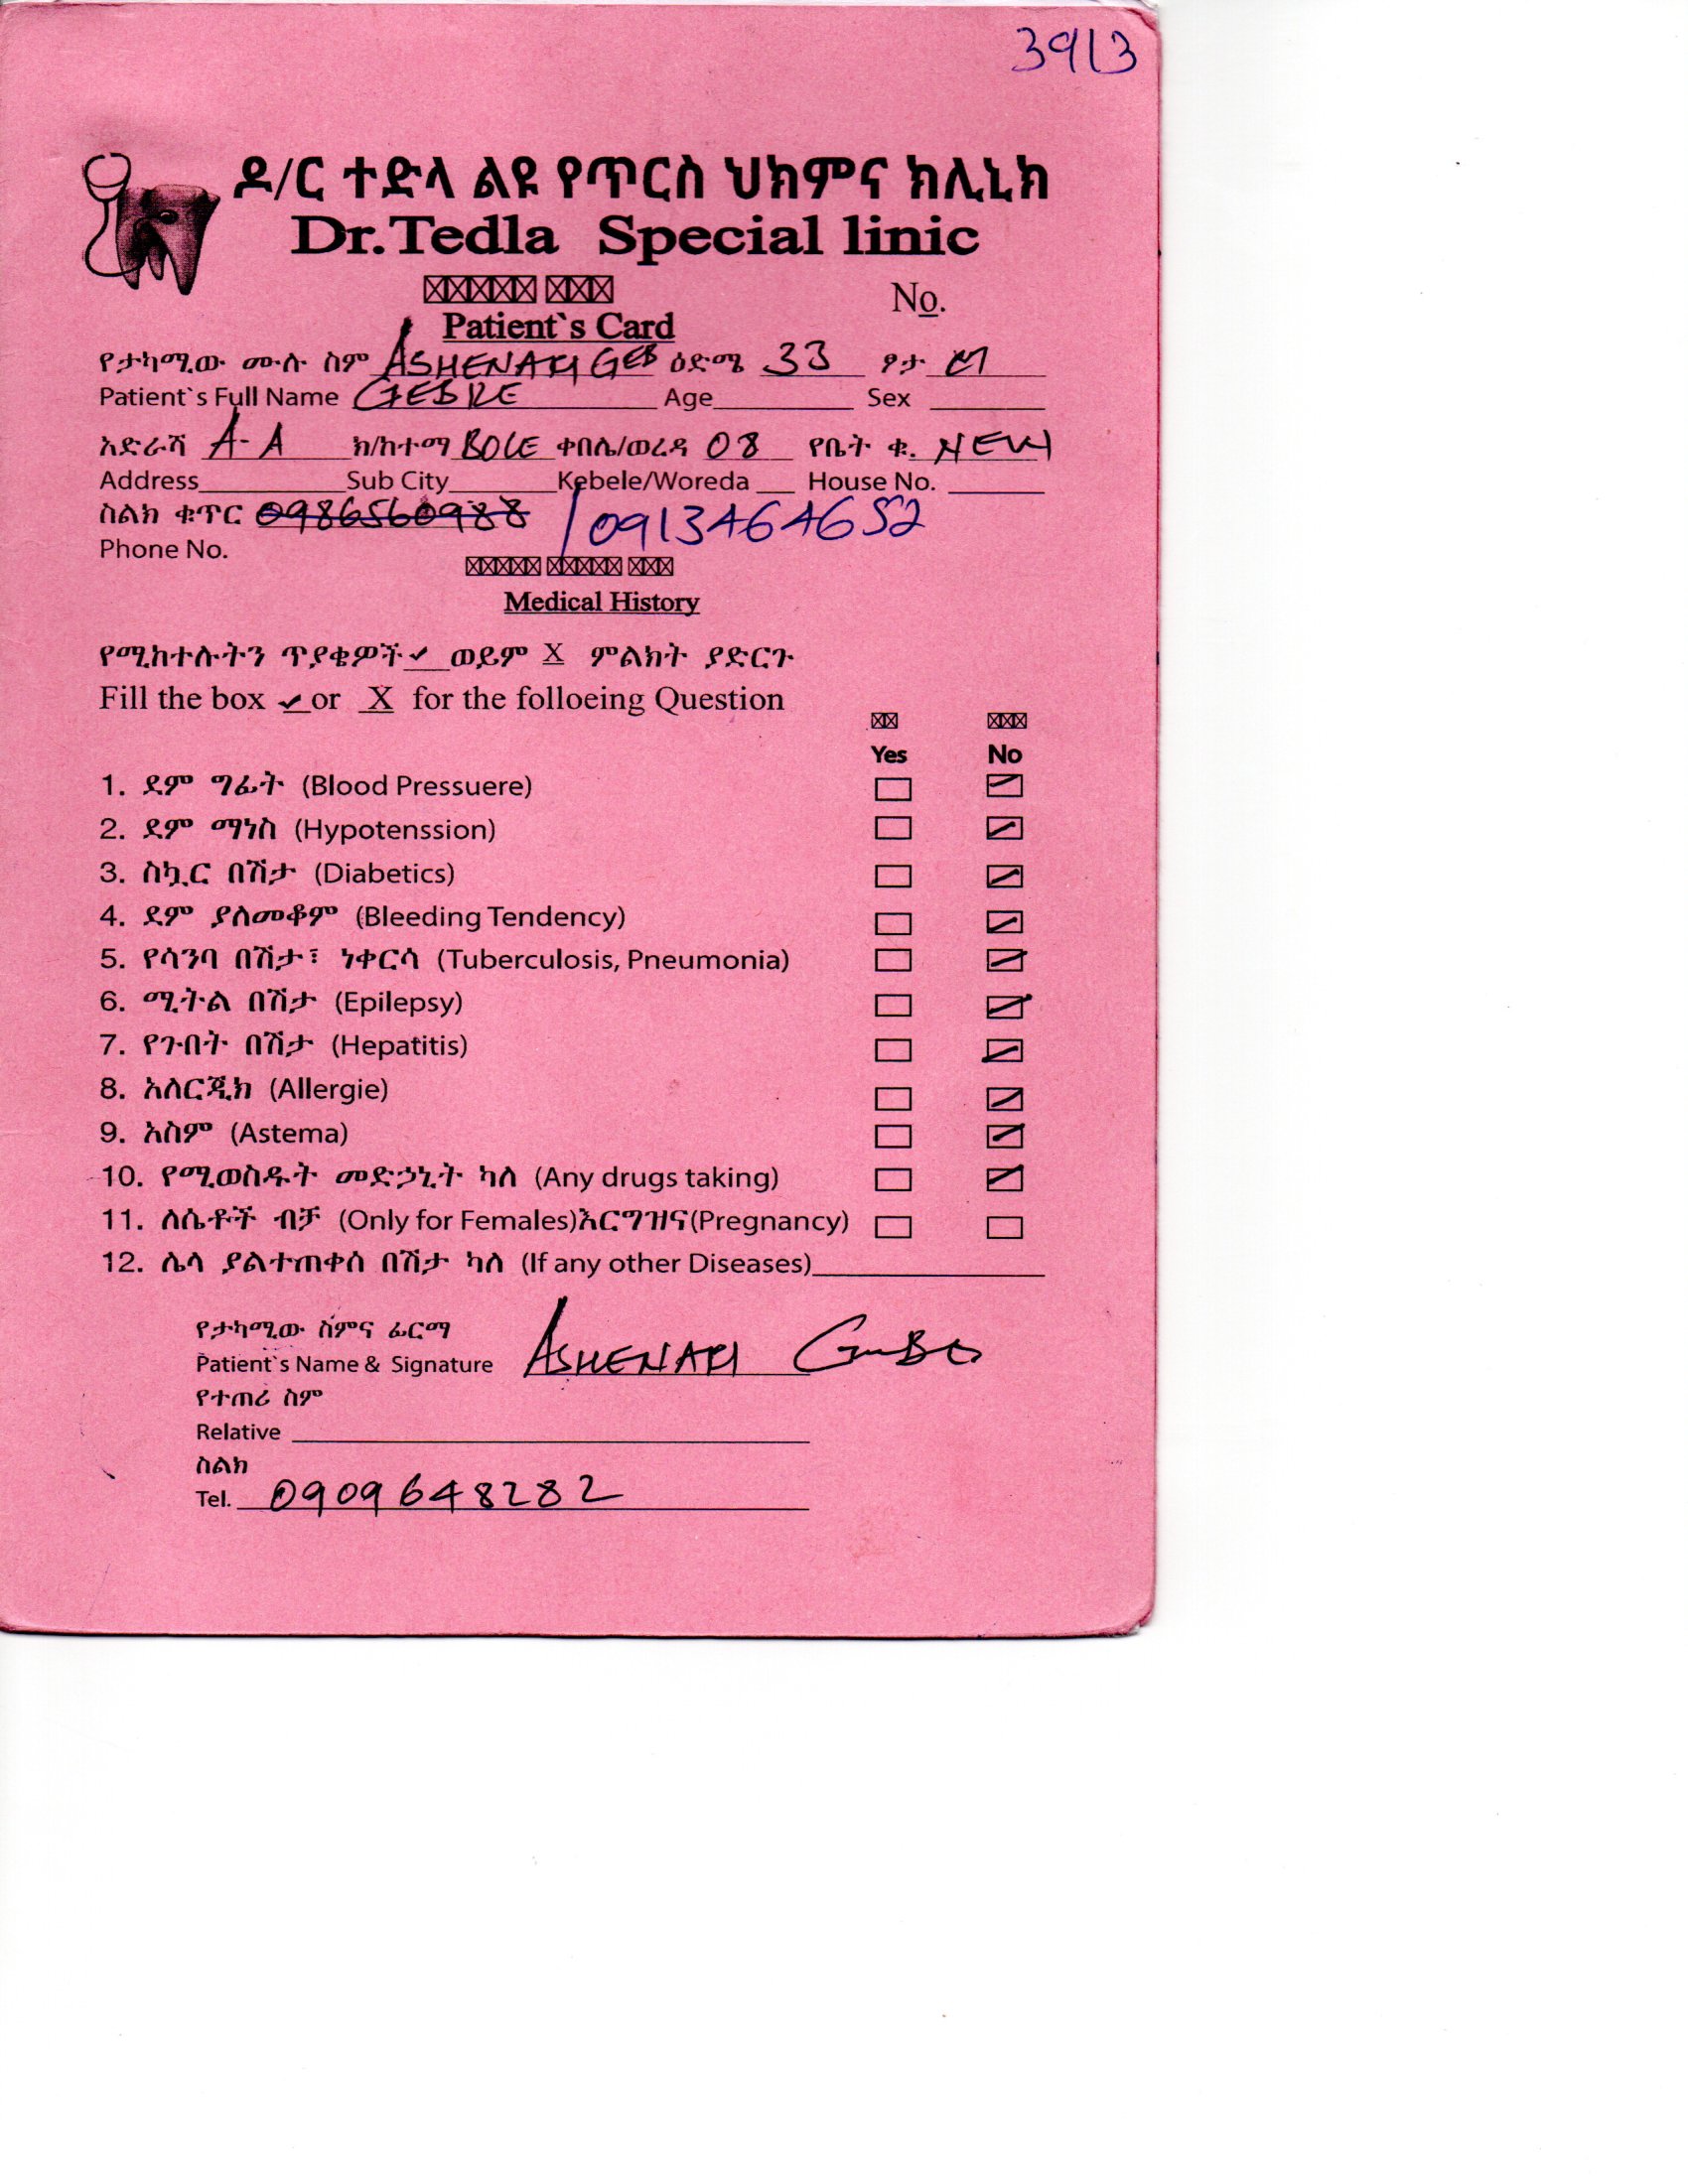 3913
ዶ/ር ተድላ ልዩ የጥርስ ህክምና ክሊኒክ
Dr.Tedla Special linic
No.
Patient`s Card
የታካሚው ሙሉ ስም ASHENAFI GEB ዕድሜ 33 ፆታ M
Patient`s Full Name GEBRE Age Sex
አድራሻ A-A ክ/ከተማ BOLE ቀበሌ/ወረዳ 08 የቤት ቁ. NEW
Address Sub City Kebele/Woreda House No.
ስልክ ቁጥር 0986560988 / 0913464652
Phone No.
Medical History
የሚከተሉትን ጥያቄዎች ✓ ወይም X ምልክት ያድርጉ
Fill the box ✓ or X for the folloeing Question
Yes No
1. ደም ግፊት (Blood Pressuere)
2. ደም ማነስ (Hypotenssion)
3. ስኳር በሽታ (Diabetics)
4. ደም ያለመቆም (Bleeding Tendency)
5. የሳንባ በሽታ፣ ነቀርሳ (Tuberculosis, Pneumonia)
6. ሚትል በሽታ (Epilepsy)
7. የጉበት በሽታ (Hepatitis)
8. አለርጂክ (Allergie)
9. አስም (Astema)
10. የሚወስዱት መድኃኒት ካለ (Any drugs taking)
11. ለሴቶች ብቻ (Only for Females)እርግዝና(Pregnancy)
12. ሌላ ያልተጠቀሰ በሽታ ካለ (If any other Diseases)
የታካሚው ስምና ፊርማ
Patient`s Name & Signature ASHENAFI
የተጠሪ ስም
Relative
ስልክ
Tel. 0909648282